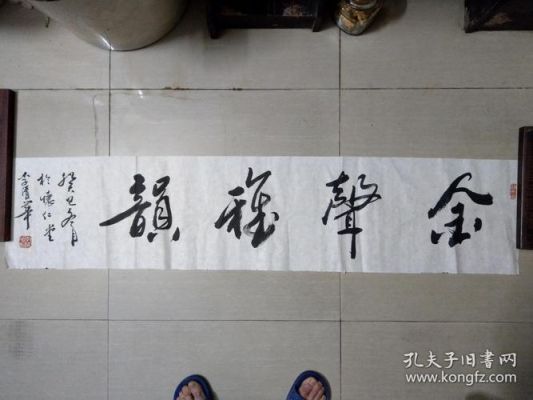 金聲雅韻
癸巳冬月
於懷仁堂
孔夫子旧书网
www.kongfz.com